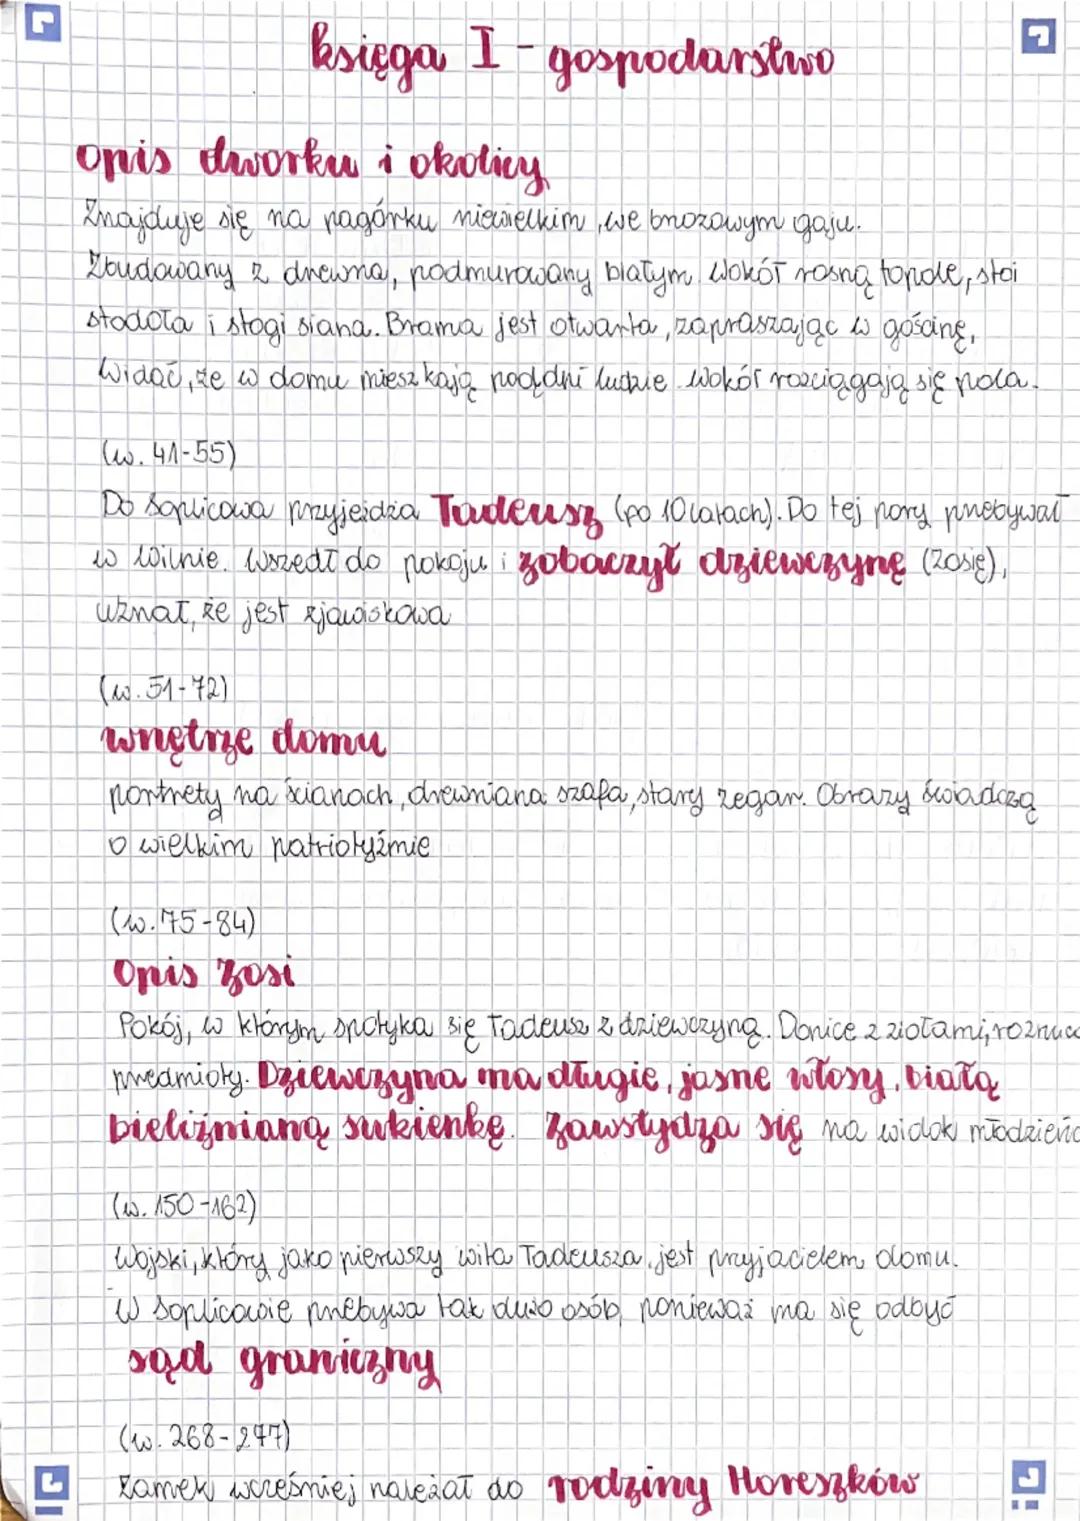 księga I - gospodarstwo
opis dworku i okolicy
Znajduje się na pagórku niewielkim, we brzozowym gaju.
Zbudowany z drewna, podmurowany białym. Wokół rosną topole, stoi
stodoła i stogi siana. Brama jest otwarta, zapraszając w gościnę,
Widać, że w domu mieszkają ludzie. Wokół rozciągają się pola.
(w. 41-55)
Do Soplicowa przyjeżdża Tadeusz (po 10 latach). Do tej pory przebywał
w Wilnie. Wszedł do pokoju i zobaczył dziewczynę (Zosię),
uznał, że jest zjawiskowa
(w. 51-72)
wnętrze domu
portrety na ścianach, drewniana szafa, stary zegar. Obrazy świadczą
o wielkim patriotyźmie
(w. 75-84)
Opis Zosi
Pokój, w którym spotyka się Tadeusz z dziewczyną. Donice z ziołami,
przedmioty. Dziewczyna ma długie, jasne włosy, białą
bieliźnianą sukienkę. Zawstydza się na widok
(w. 150-162)
Wojski, który jako pierwszy wita Tadeusza, jest przyjacielem domu.
W Soplicowie przebywa tak dużo osób, ponieważ ma się odbyć
sąd graniczny
(w. 268-277)
Zamek wcześniej należał do rodziny Horeszków